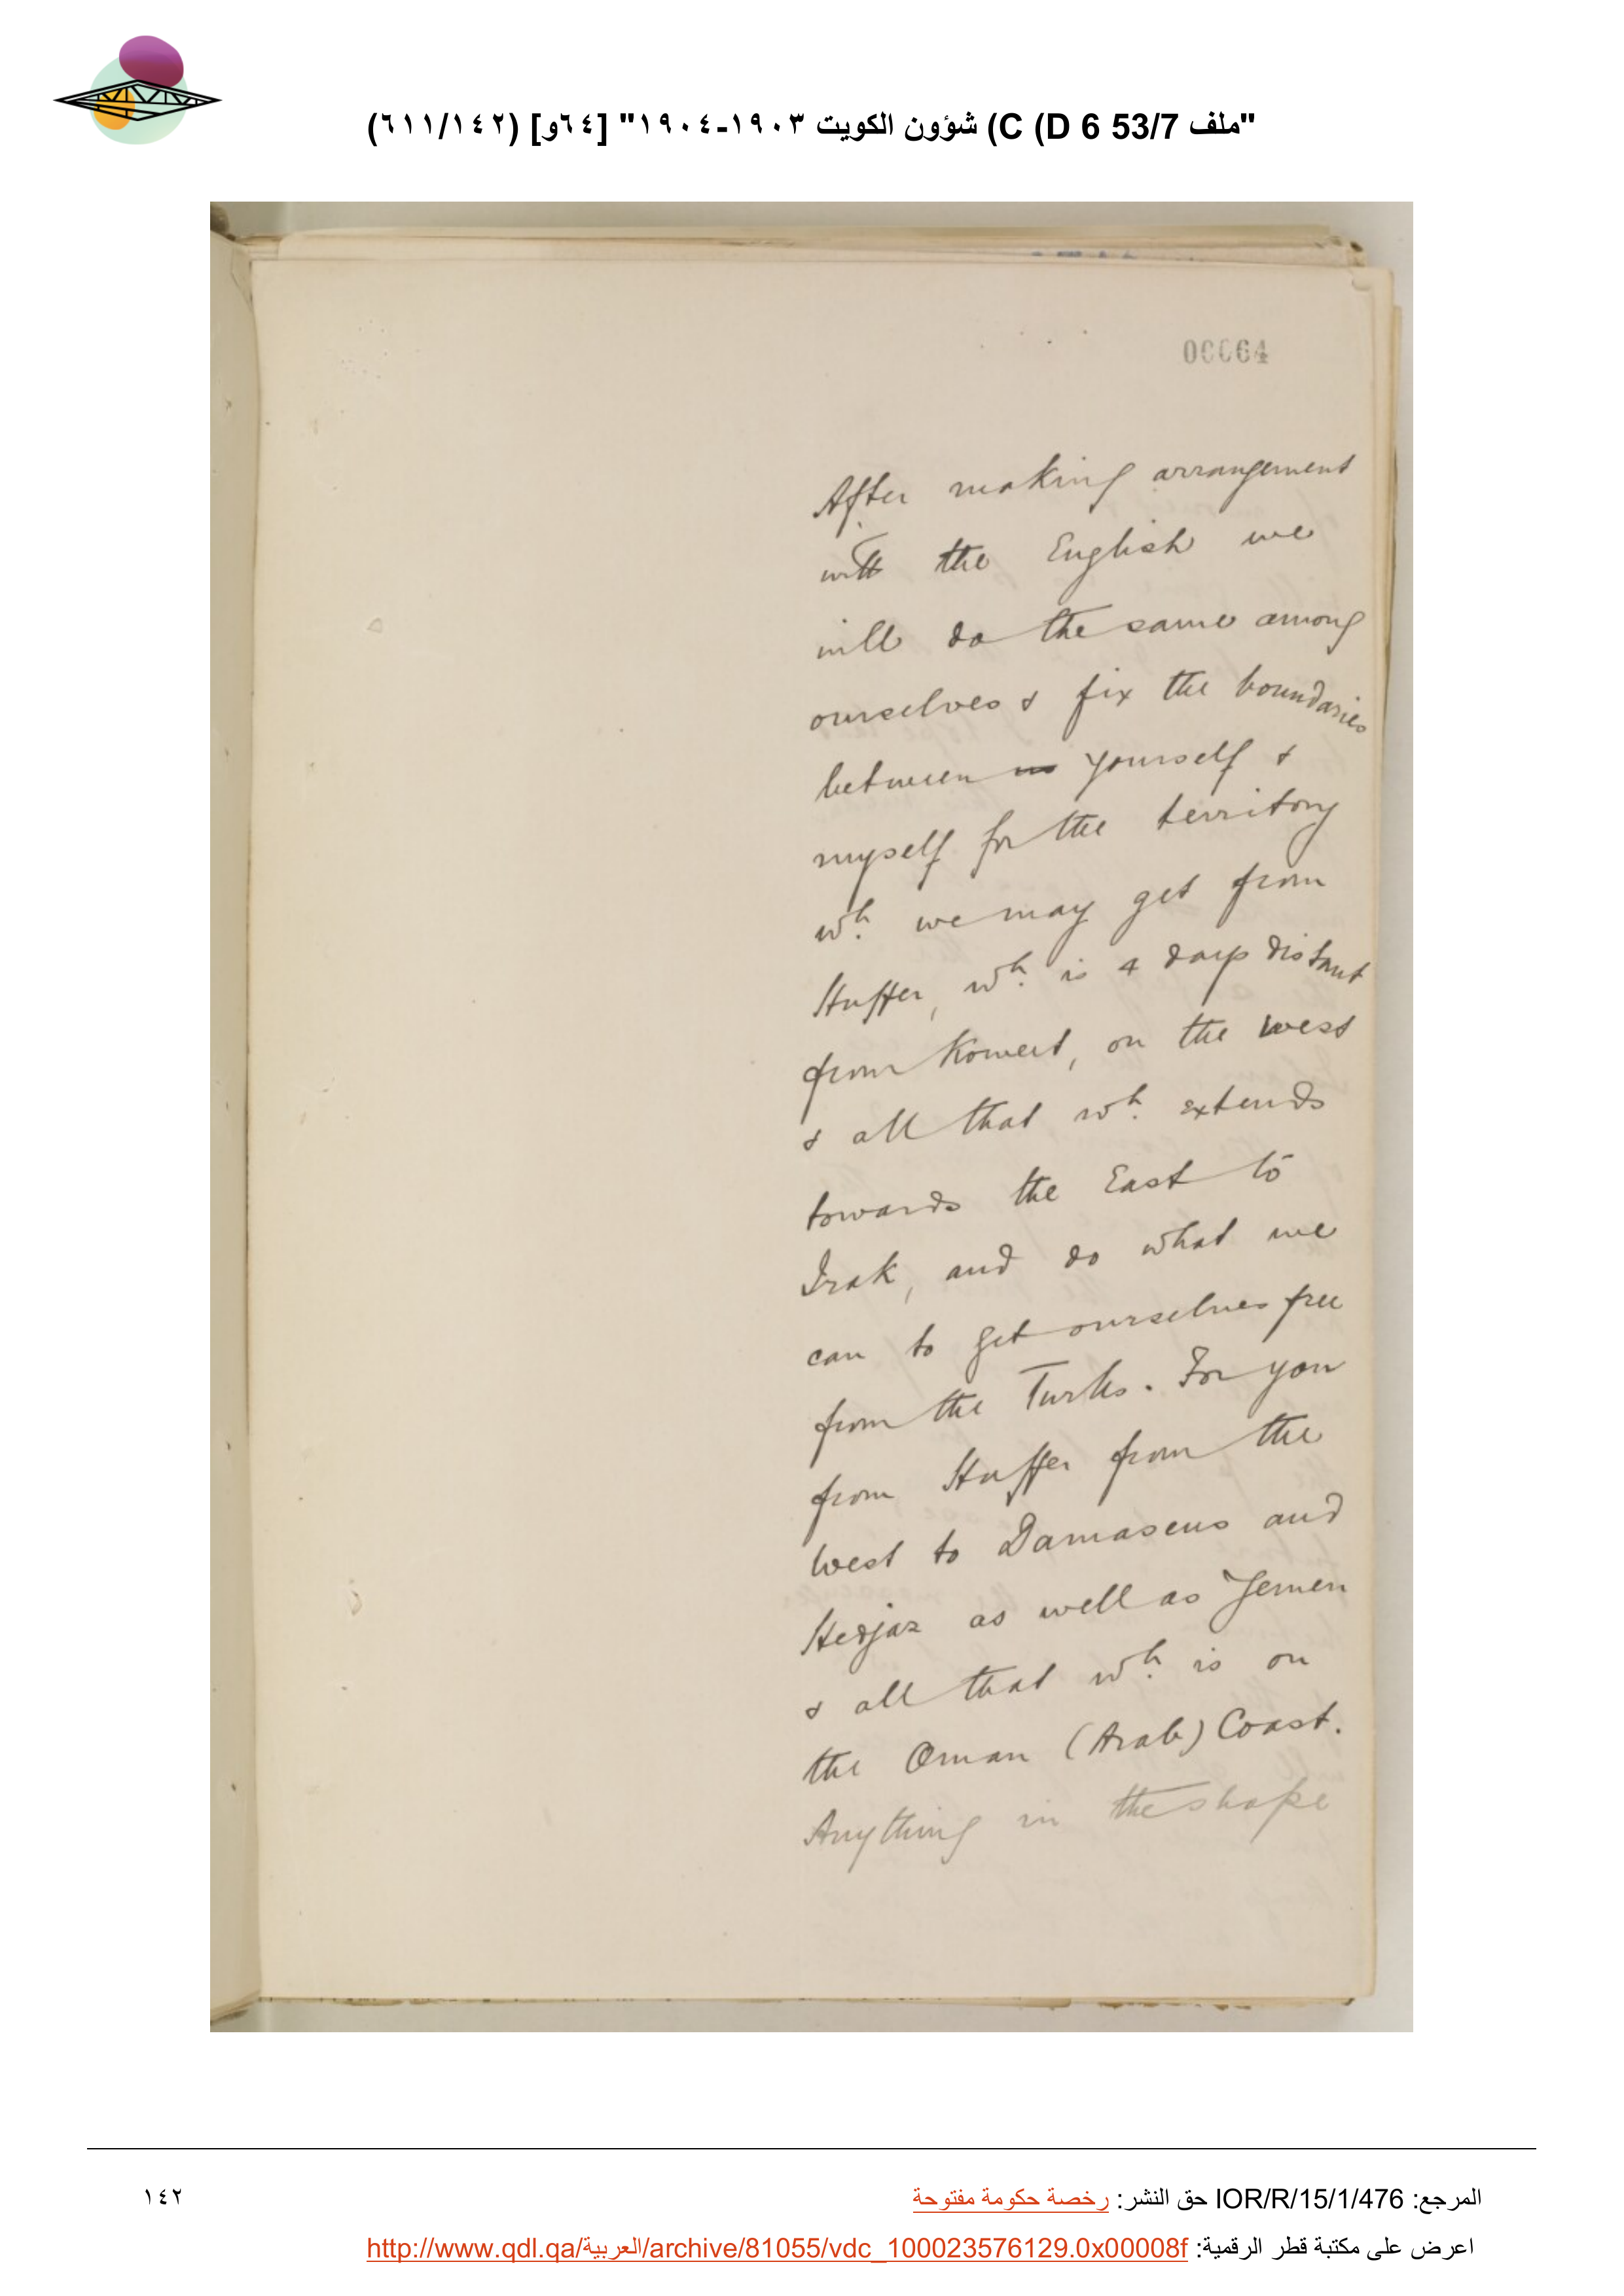 "ملف 53/7 D 6) C) شؤون الكويت ١٩٠٣-١٩٠٤" [٦٤و] (٦١١/١٤٢)
00064
After making arrangement
with the English we
will do the same among
ourselves & fix the boundaries
between us yourself &
myself for the territory
wh. we may get from
Huffer, wh. is 4 days distant
from Koweit, on the West
& all that wh. extends
towards the East to
Irak, and do what we
can to get ourselves free
from the Turks. For you
from Huffer from the
West to Damascus and
Hedjaz as well as Yemen
& all that wh. is on
the Oman (Arab) Coast.
Anything in the shape
المرجع: IOR/R/15/1/476 حق النشر: رخصة حكومة مفتوحة
١٤٢
اعرض على مكتبة قطر الرقمية: http://www.qdl.qa/العربية/archive/81055/vdc_100023576129.0x00008f